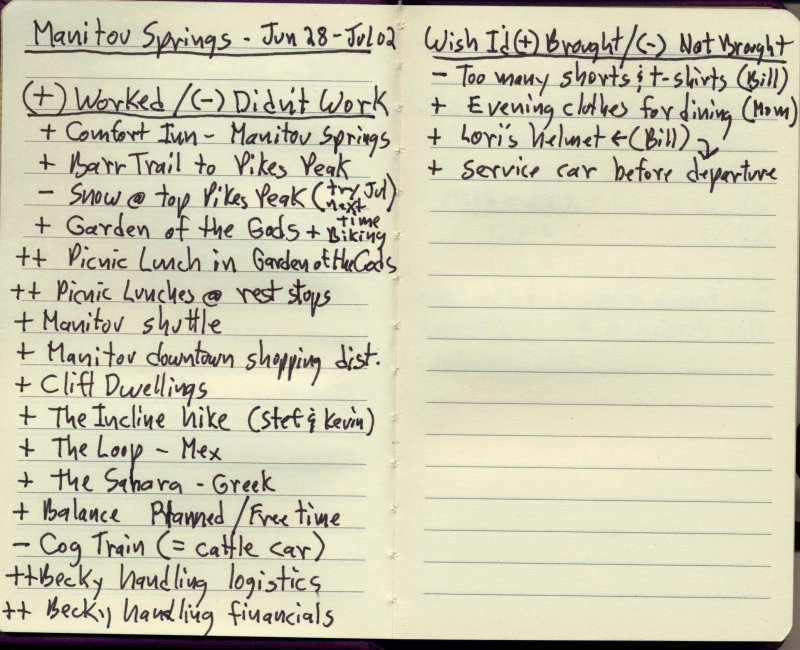 Manitou Springs - Jun 28 - Jul 02
(+) Worked / (-) Didn't Work
+ Comfort Inn - Manitou Springs
+ Barr Trail to Pikes Peak
- Snow @ top Pikes Peak (try Jul next time)
+ Garden of the Gods + Biking
++ Picnic Lunch in Garden of the Gods
++ Picnic Lunches @ rest stops
+ Manitou shuttle
+ Manitou downtown shopping dist.
+ Cliff Dwellings
+ The Incline hike (Stef & Kevin)
+ The Loop - Mex
+ the Sahara - Greek
+ Balance Planned / Free time
- Cog Train (= cattle car)
++ Becky handling logistics
++ Becky handling financials
Wish I'd (+) Brought / (-) Not Brought
- Too many shorts & t-shirts (Bill)
+ Evening clothes for dining (Mom)
+ Lori's helmet ← (Bill)
+ service car before departure